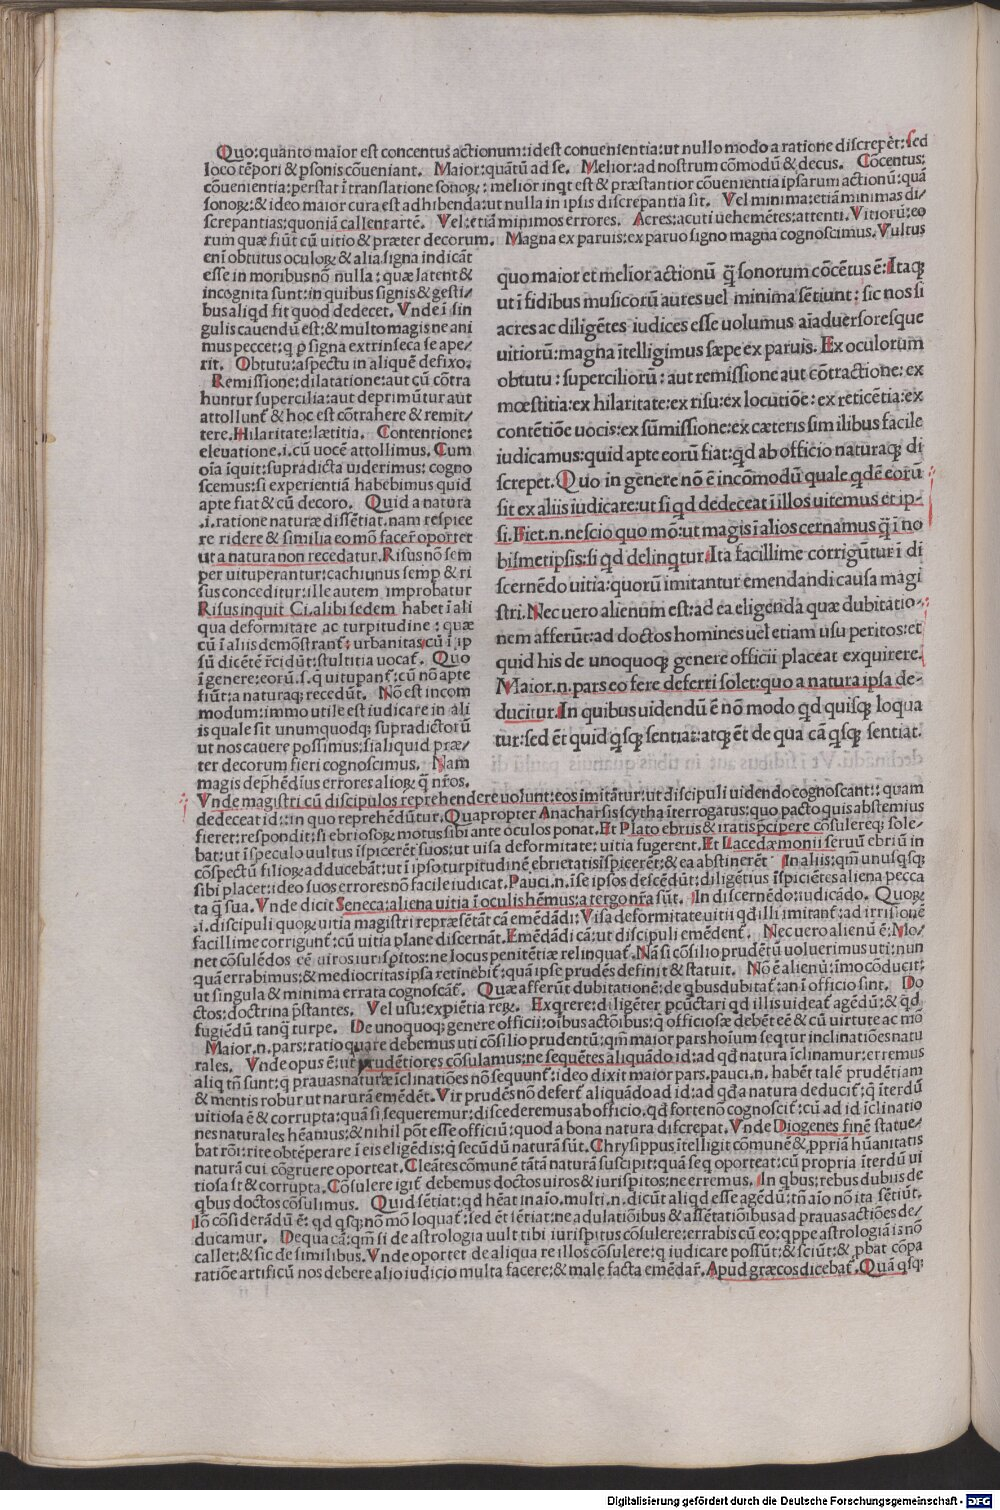 Quo:quanto maior est concentus actionum:idest conuenientia:ut nullo modo a ratione discrepēt:sed
loco tēpori & psonis cōueniant. Maior:quātū ad se. Melior:ad nostrum cōmodū & decus. Cōcentus:
cōuenientia:perstat ī translatione sonoꝝ: melior inqt est & præstantior cōuenientia ipsarum actionū:quā
sonoꝝ:& ideo maior cura est adhibenda:ut nulla in ipsis discrepantia sit. Vel minima:etiā minimas di/
screpantias:quoniā callent artē. Vel:etiā minimos errores. Acres:acuti uehemētes:attenti. Vitiorū:eo
rum quæ fiūt cū uitio & præter decorum. Magna ex paruis:ex paruo signo magna cognoscimus. Vultus
enī obtutus oculoꝝ & alia signa indicāt
esse in moribus nō nulla: quæ latent &
incognita sunt:in quibus signis & gesti/
bus aliqd fit quod dedecet. Vnde ī sin
gulis cauendū est:& multo magis ne ani
mus peccet:q p signa extrinseca se ape/
rit. Obtutu:aspectu in aliquē defixo.
Remissione:dilatatione:aut cū cōtra
huntur supercilia:aut deprimūtur aut
attollunt & hoc est cōtrahere & remit/
tere. Hilaritate:lætitia. Contentione:
eleuatione.i.cū uocē attollimus. Cum
oīa īquit:supradicta uiderimus: cogno
scemus:si experientiā habebimus quid
apte fiat & cū decoro. Quid a natura
.i.ratione naturæ dissētiat.nam respice
re ridere & similia eo mō facer oportet
ut a natura non recedatur. Risus nō sem
per uituperantur:cachiunus semp & ri
sus conceditur:ille autem improbatur
Risus inquit Ci.alibi sedem habet ī ali
qua deformitate ac turpitudine: quæ
cū ī aliis demōstrant: urbanitas:cū ī ip
sū dicētē rcidūt:stultitia uocat. Quo
ī genere:eorū.s.q uitupant:cū nō apte
fiūt:a naturaq; recedūt. Nō est incom
modum:immo utile est iudicare in ali
is quale sit unumquodq; supradictorū
ut nos cauere possimus:si aliquid præ/
ter decorum fieri cognoscimus. Nam
magis dephēdius errores alioꝝ q̄ nros.
quo maior et melior actionū q̄ sonorum cōcētus ē:Itaq;
ut ī fidibus musicorū aures uel minima sētiunt: sic nos si
acres ac diligētes iudices esse uolumus aīaduersoresque
uitiorū:magna ītelligimus sæpe ex paruis. Ex oculorum
obtutu: superciliorū: aut remissione aut cōtractione: ex
mœstitia:ex hilaritate:ex risu:ex locutiōe: ex reticētia:ex
contētiōe uocis:ex sūmissione:ex cæteris similibus facile
iudicamus:quid apte eorū fiat:qd ab officio naturaq; di
screpet. Quo in genere nō ē incōmodū quale qdē eorū
sit ex aliis iudicare:ut si qd dedeceat ī illos uitemus et ip-
si. Fiet.n.nescio quo mō:ut magis ī alios cernamus q̄ ī no
bismetipsis:si qd delinqtur. Ita facillime corrigūtur ī di
scernēdo uitia:quorū imitantur emendandi causa magi
stri. Nec uero alienum est:ad ea eligenda quæ dubitatio-
nem afferūt:ad doctos homines uel etiam usu peritos:et
quid his de unoquoq; genere officii placeat exquirere.
Maior.n.pars eo fere deferri solet:quo a natura ipsa de-
ducitur. In quibus uidendū ē nō modo qd quisq; loqua
tur:sed ēt quid qsq; sentiat:atq; ēt de qua cā qsq; sentiat.
Vnde magistri cū discipulos reprehendere uolunt:eos imitātur:ut discipuli uidendo cognoscant: quam
dedeceat id:in quo reprehēdūtur. Quapropter Anacharsis scytha īterrogatus:quo pacto quis abstemius
fieret:respondit:si ebriosoꝝ motus sibi ante oculos ponat. Et Plato ebriis & iratis pcipere cōsulereq; sole-
bat:ut ī speculo uultus īspicerēt suos:ut uisa deformitate: uitia fugerent. Et Lacedæmonii seruū ebriū in
cōspectū filioꝝ adducebāt:ut ī ipso turpitudinē ebrietatis īspicerēt:& ea abstinerēt In aliis:qm unusqsq;
sibi placet:ideo suos errores nō facile iudicat. Pauci.n.ī se ipsos descēdūt:diligētius īspiciētes aliena pecca
ta q̄ sua. Vnde dicit Seneca:aliena uitia ī oculis hēmus:a tergo nra sūt. In discernēdo:iudicādo. Quoꝝ
.i.discipuli quoꝝ uitia magistri repræsētāt cā emēdādi: Visa deformitate uitii qd illi imitant:ad irrisionē
facillime corrigunt:cū uitia plane discernāt. Emēdādi cā:ut discipuli emēdent. Nec uero alienū ē: Mo/
net cōsulēdos eē uiros iurispitos:ne locus penitētiæ relinquat. Nā si cōsilio prudētū uoluerimus uti:nun
quā errabimus:& mediocritas ipsa retinebit:quā ipse prudēs definit & statuit. Nō ē alienū:īmo cōducit:
ut singula & minima errata cognoscāt. Quæ afferūt dubitationē:de qbus dubitat:an ī officio sint. Do
ctos:doctrina pstantes. Vel usu:expiētia reꝝ. Exqrere:diligēter pcūctari qd illis uideat agēdū:& qd
fugiēdū tanq turpe. De unoquoq; genere officii:oibus actōibus:q officiosæ debēt eē & cū uirtute ac mō
Maior.n.pars:ratio quare debemus uti cōsilio prudentū:qm maior pars hoīum seqtur inclinatiōes natu
rales. Vnde opus ē:ut prudētiores cōsulamus:ne sequētes aliquādo id:ad qd natura īclinamur:erremus
aliq tn sunt:q prauas naturæ īclinatiōes nō sequunt:ideo dixit maior pars.pauci.n.habēt talē prudētiam
& mentis robur ut narurā emēdēt. Vir prudēs nō defert aliquādo ad id:ad qd a natura deducit:q īterdū
uitiosa ē & corrupta:quā si sequeremur:discederemus ab officio.qd forte nō cognoscit:cū ad id īclinatio
nes naturales hēamus:& nihil pōt esse officiū:quod a bona natura discrepat. Vnde Diogenes finē statue/
bat rōi:rite obtēperare ī eis eligēdis:q secūdū naturā sūt. Chrysippus ītelligit comunē & ppriā hūanitatis
naturā cui cōgruere oporteat. Cleātes comunē tātā naturā suscipit:quā seq oporteat:cū propria īterdū ui
tiosa sit & corrupta. Cōsulere igit debemus doctos uiros & iurispitos:ne erremus. In qbus:rebus dubiis de
qbus doctos cōsulimus. Quid sētiat:qd hēat in aīo.multi.n.dicūt aliqd esse agēdū:tn aīo nō ita sētiūt.
Iō cōsiderādū ē: qd qsq; nō mō loquat:sed ēt sētiat:ne adulatiōibus & assētatiōibus ad prauas actiōes de/
ducamur. De qua cā:qm si de astrologia uult tibi iurispitus cōsulere:errabis cū eo:qppe astrologiā is nō
callet:& sic de similibus. Vnde oportet de aliqua re illos cōsulere:q iudicare possūt:& sciūt:& pbat cōpa
ratiōe artificū nos debere alio iudicio multa facere:& male facta emēdar. Apud græcos dicebat. Quā qsq;
Digitalisierung gefördert durch die Deutsche Forschungsgemeinschaft - DFG